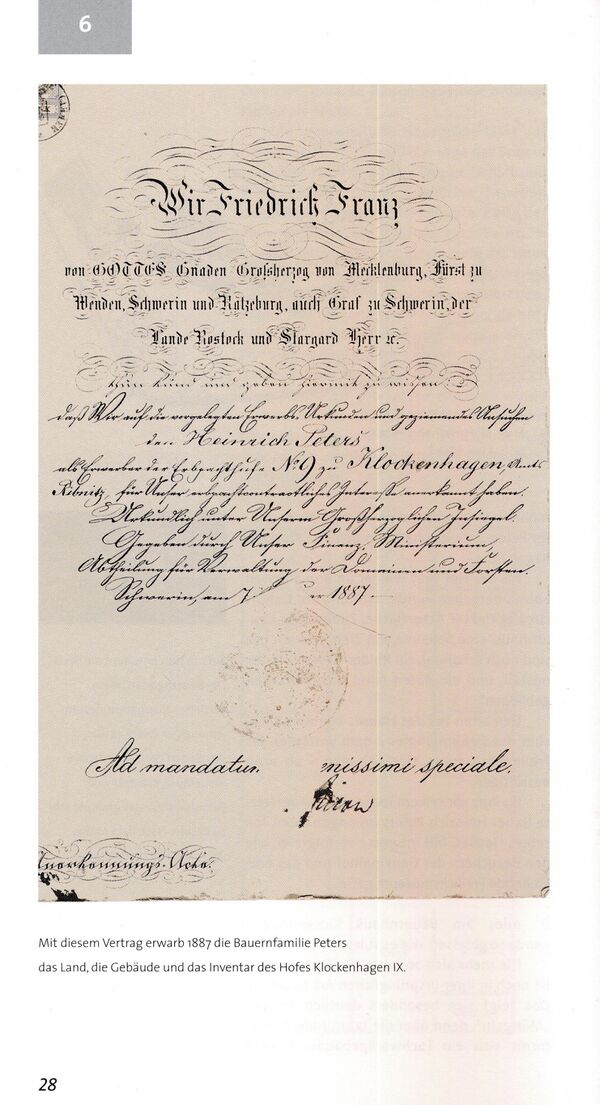 6
Wir Friedrich Franz
von GOTTES Gnaden Großherzog von Mecklenburg, Fürst zu
Wenden, Schwerin und Ratzeburg, auch Graf zu Schwerin, der
Lande Rostock und Stargard Herr ꝛc.
thun kund und geben hiermit zu wissen
daß Wir auf die vorgelegten Erwerbs-Urkunden und geziemendes Ansuchen
den Heinrich Peters
als Erwerber der Erbpachthufe No 9 zu Klockenhagen, Amts
Ribnitz, für Unser erbpachtcontractliches Interesse anerkannt haben.
Urkundlich unter Unserm Großherzoglichen Insiegel.
Gegeben durch Unser Finanz-Ministerium,
Abtheilung für Verwaltung der Domainen und Forsten.
Schwerin, am 7 er 1887.
Ad mandatum nissimi speciale.
Anerkennungs-Acte.
Mit diesem Vertrag erwarb 1887 die Bauernfamilie Peters
das Land, die Gebäude und das Inventar des Hofes Klockenhagen IX.
28